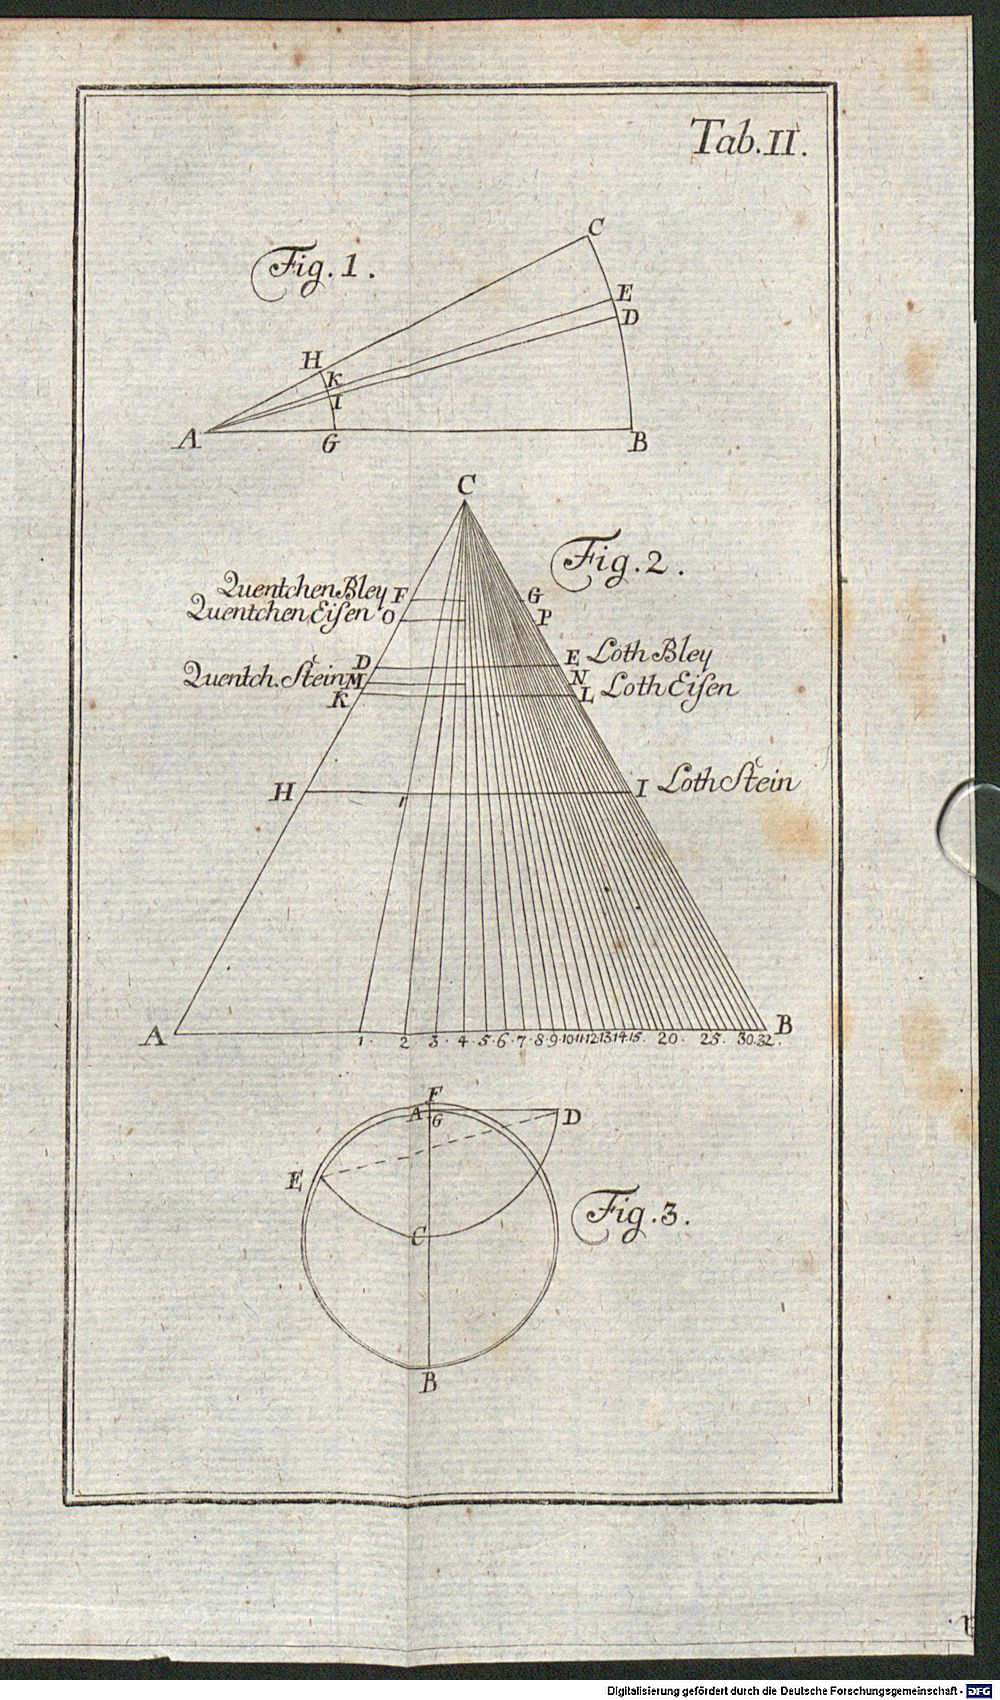 Tab. II.
Fig. 1.
C
E
D
H
K
I
A
G
B
C
Fig. 2.
Quentchen Bley F
G
Quentchen Eiſen O
P
D
E Loth Bley
Quentch. Stein M
N
K
L Loth Eiſen
H
I Loth Stein
A
B
1. 2. 3. 4. 5. 6. 7. 8. 9. 10. 11. 12. 13. 14. 15. 20. 25. 30. 32.
F
A
G
D
E
Fig. 3.
C
B
Digitalisierung gefördert durch die Deutsche Forschungsgemeinschaft - DFG